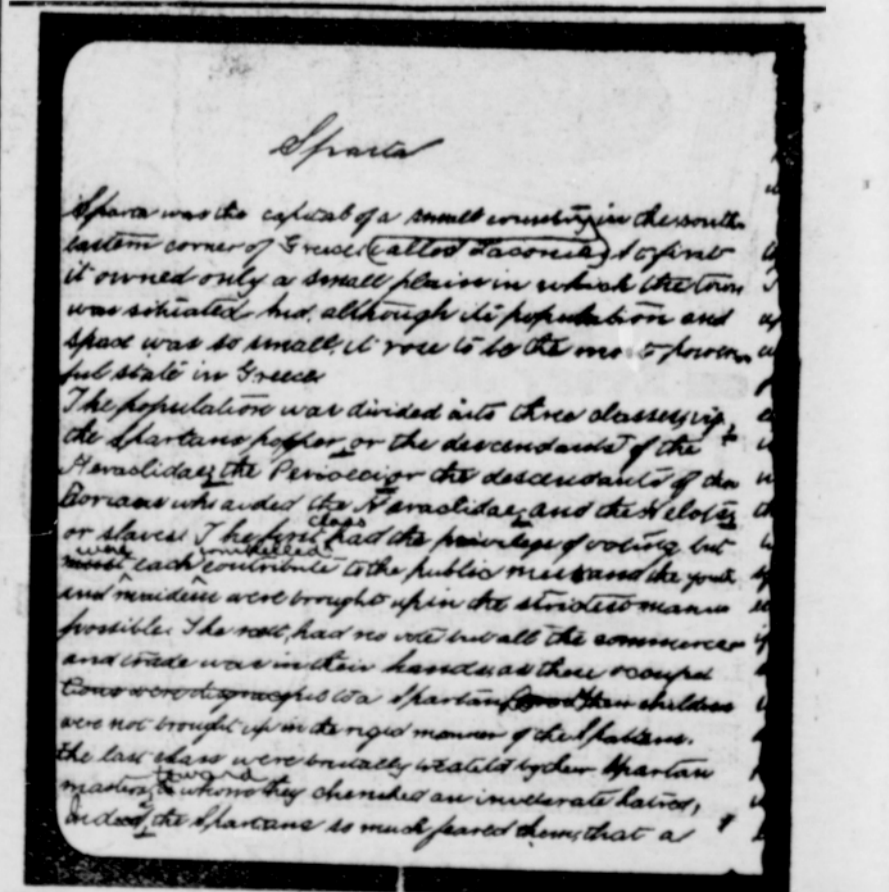 Sparta
Sparta was the capital of a small country in the south
eastern corner of Greece (called Laconia) At first
it owned only a small plain in which the town
was situated. And, although its population and
space was so small, it rose to be the most power-
ful state in Greece
The population was divided into three classes, viz,
the Spartans proper, or the descendants of the
Heraclidae, the Perioeci or the descendants of the
Dorians who aided the Heraclidae, and the Helots,
or slaves. The first class had the privilege of voting but
were compelled
must each contribute to the public mess and the youth
and maidens were brought up in the strictest manner
possible. The rest, had no vote but all the commerce
and trade was in their hands as these occupa
tions were disgraceful to a Spartan, their children
were not brought up in the rigid manner of the Spartans.
the last class were brutally treated by their Spartan
masters, toward whom they cherished an inveterate hatred,
Indeed, the Spartans so much feared them, that a